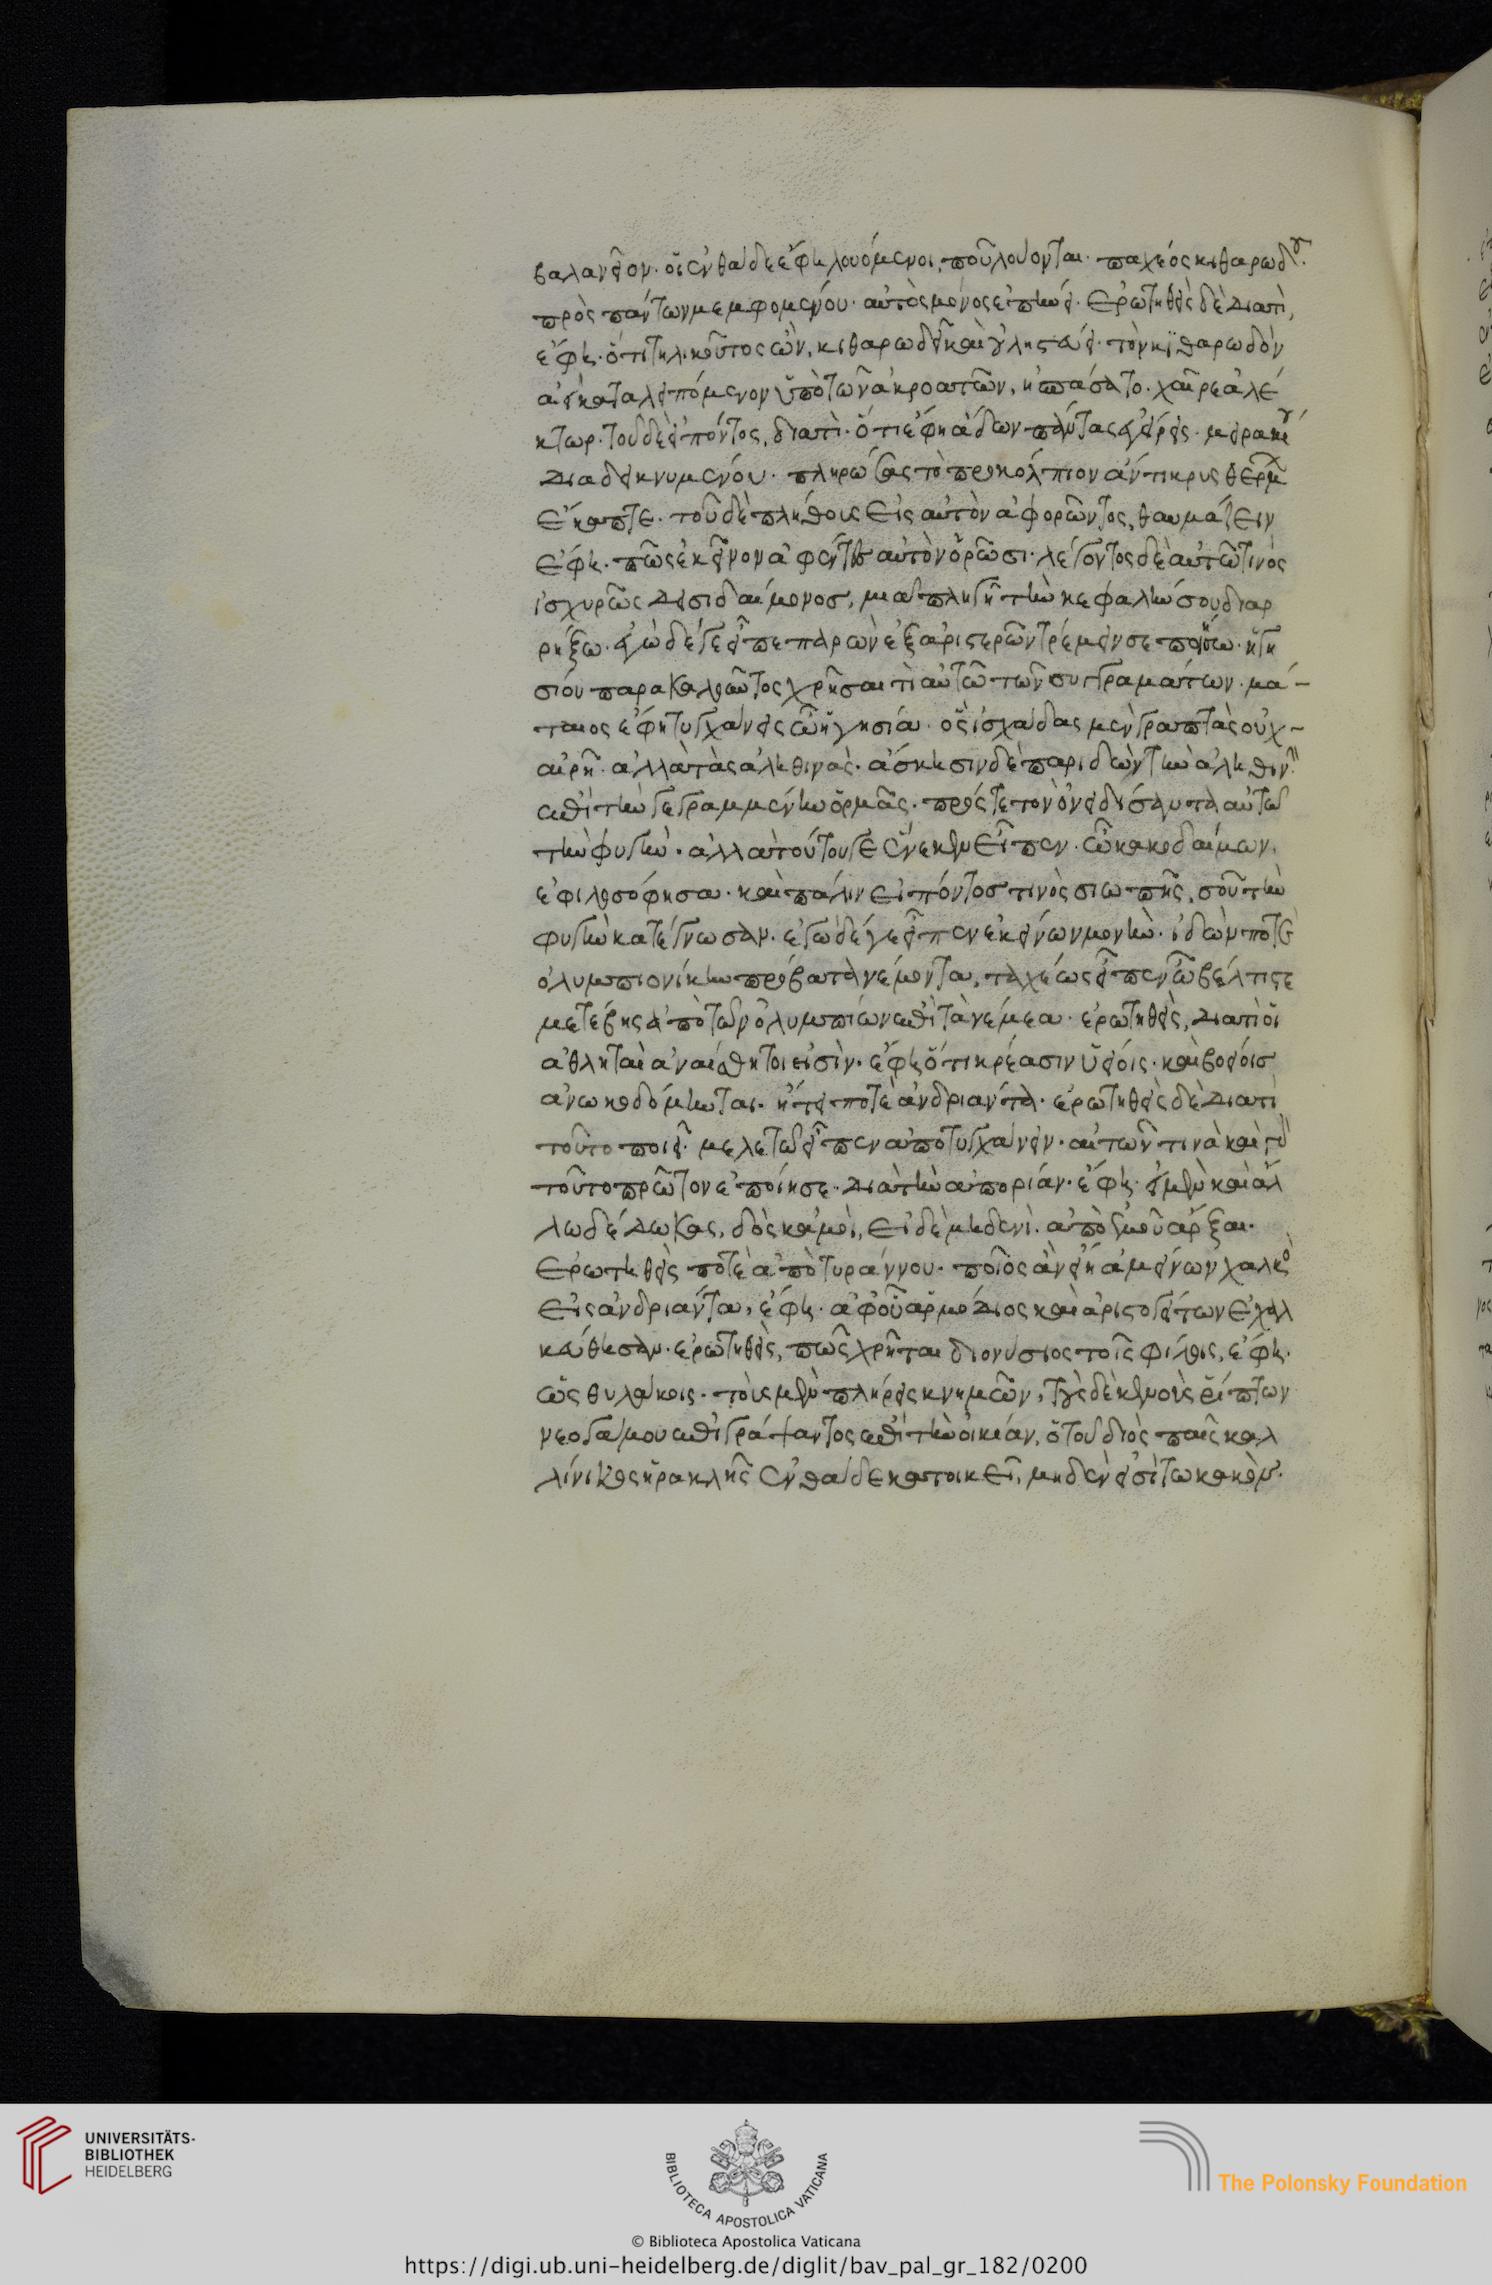 βαλανεῖον· οἱ ἐνθάδε ἔφη λουόμενοι, ποῦ λούονται· παχέος κιθαρωδοῦ·
πρὸς πάντων μεμφομένου· αὐτὸς μόνος ἐπήνει· ἐρωτηθεὶς δὲ διατί,
ἔφη· ὅτι τηλικοῦτος ὢν, κιθαρωδεῖ καὶ οὐ ληστεύει· τὸν κιθαρωδὸν
ἀεὶ καταλειπόμενον ὑπὸ τῶν ἀκροατῶν, ἠσπάσατο· χαῖρε ἀλέ
κτωρ· τοῦ δὲ εἰπόντος, διατί· ὅτι ἔφη ἄδων πάντας ἐγείρεις· μειρακίου
διαδεικνυμένου· πληρώσας τὸ προκόλπιον ἀντικρυς θέρμων
ἔκαπτε· τοῦ δὲ πλήθους εἰς αὐτὸν ἀφορῶντος, θαυμάζειν
ἔφη· πῶς ἐκεῖνον ἀφέντες αὐτὸν ὁρῶσι· λέγοντος δὲ αὐτῶ τινὸς
ἰσχυρῶς δεισιδαίμονος, μιᾶ πληγῆ τὴν κεφαλήν σου διαρ
ρήξω· ἐγὼ δέ γε εἶπε πταρὼν ἐξ ἀριστερῶν τρέμειν σε ποιήσω· ἡγη
σίου παρακαλοῦντος χρῆσαι τι αὐτῶ τῶν συγγραμάτων· μά-
ταιος ἔφη τυγχάνεις ὦ ἡγησία· ὃς ἰσχάδας μὲν γραπτὰς οὐχ-
αἱρῆ· ἀλλὰ τὰς ἀληθινάς· ἄσκησιν δὲ παριδὼν τὴν ἀληθινὴν
ἐπὶ τὴν γεγραμμένην ὁρμᾶς· πρός τε τὸν ὀνειδίσαντα αὐτῶ
τὴν φυγήν· ἀλλὰ τούτου γε ἕνεκεν εἶπεν· ὦ κακοδαίμων,
ἐφιλοσόφησα· καὶ πάλιν εἰπόντος τινὸς σιωπῆς, σοῦ τὴν
φυγὴν κατέγνωσαν· ἐγὼ δέ γε εἶπεν ἐκείνων μονήν· ἰδὼν ποτὲ
ὀλυμπιονίκην πρόβατα νέμοντα, ταχέως εἶπεν ὦ βέλτιστε
μετέβης ἀπὸ τῶν ὀλυμπίων ἐπὶ τὰ νέμεα· ἐρωτηθεὶς, διατί οἱ
ἀθληταὶ ἀναίσθητοι εἰσὶν· ἔφη ὅτι κρέασιν ὑείοις· καὶ βοείοις
ἀνωκοδόμηνται· ᾔτει ποτὲ ἀνδριάντα· ἐρωτηθεὶς δὲ διατί
τοῦτο ποιεῖ· μελετῶ εἶπεν ἀποτυγχάνειν· αἰτῶν τινὰ καὶ γὰρ
τοῦτο πρῶτον ἐποίησε· διὰ τὴν ἀπορίαν· ἔφη· εἰ μὲν καὶ ἄλ
λω δέδωκας, δὸς κἀμοὶ, εἰ δὲ μηδενί· ἀπὸ ἐμοῦ ἄρξαι·
ἐρωτηθεὶς ποτὲ ἀπὸ τυράννου· ποῖος ἂν εἴη ἀμείνων χαλκὸς
εἰς ἀνδριάντα, ἔφη· ἀφ' οὗ ἁρμόδιος καὶ ἀριστογείτων ἐχαλ
κεύθησαν· ἐρωτηθεὶς, πῶς χρῆται διονύσιος τοῖς φίλοις, ἔφη·
ὡς θυλάκοις· τοὺς μὲν πλήρεις κνημῶν, τοὺς δὲ κενοὺς ῥίπτων
νεογάμου ἐπιγράψαντος ἐπὶ τὴν οἰκίαν, ὁ τοῦ διὸς παῖς καλ
λίνικος ἡρακλῆς ἐνθάδε κατοικεῖ, μηδὲν εἰσίτω κακόν·
UNIVERSITÄTS-
BIBLIOTHEK
HEIDELBERG
BIBLIOTECA APOSTOLICA VATICANA
The Polonsky Foundation
© Biblioteca Apostolica Vaticana
https://digi.ub.uni-heidelberg.de/diglit/bav_pal_gr_182/0200